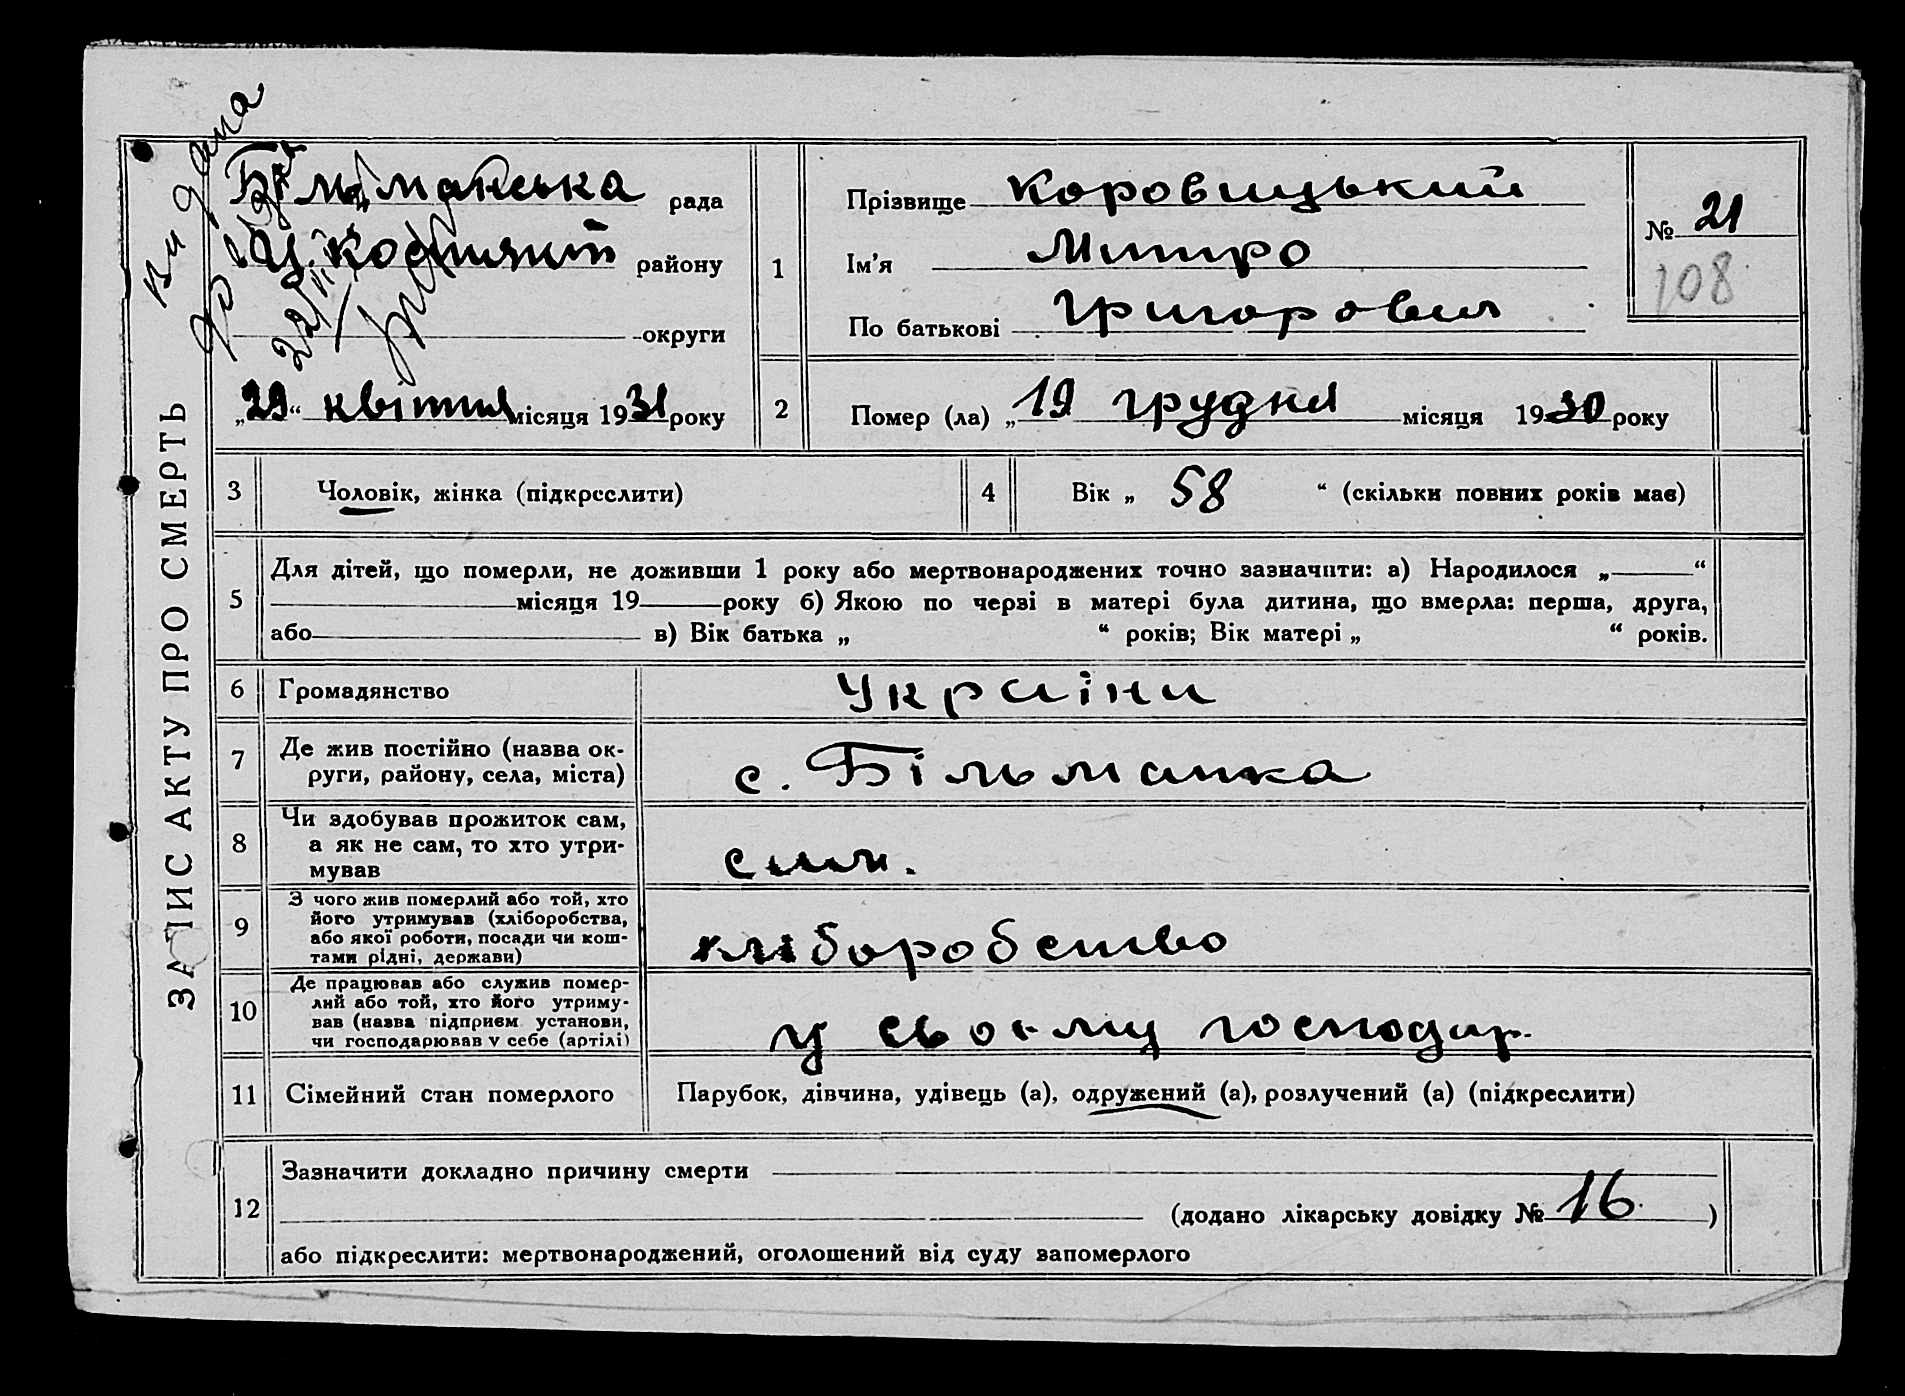 ЗАПИС АКТУ ПРО СМЕРТЬ
Видана
22/VII
Більманська рада
району
округи
„29“ квітня місяця 1931 року
1
Прізвище Коровицький
Ім'я Митро
По батькові Григорович
№ 21
108
2
Помер (ла) „19 грудня місяця 1930 року
3 Чоловік, жінка (підкреслити)
4 Вік „ 58 “ (скільки повних років має)
5
Для дітей, що померли, не доживши 1 року або мертвонароджених точно зазначити: а) Народилося „ “
місяця 19 року б) Якою по черзі в матері була дитина, що вмерла: перша, друга,
або в) Вік батька „ “ років; Вік матері „ “ років.
6 Громадянство Украіни
7 Де жив постійно (назва ок-
руги, району, села, міста) с. Більманка
8 Чи здобував прожиток сам,
а як не сам, то хто утри-
мував сам.
9 З чого жив померлий або той, хто
його утримував (хліборобства,
або якої роботи, посади чи кош-
тами рідні, держави) хліборобство
10 Де працював або служив помер-
лий або той, хто його утриму-
вав (назва підприєм. установи,
чи господарював у себе (артілі) у своєму господар.
11 Сімейний стан померлого Парубок, дівчина, удівець (а), одружений (а), розлучений (а) (підкреслити)
12
Зазначити докладно причину смерти
(додано лікарську довідку № 16 )
або підкреслити: мертвонароджений, оголошений від суду запомерлого